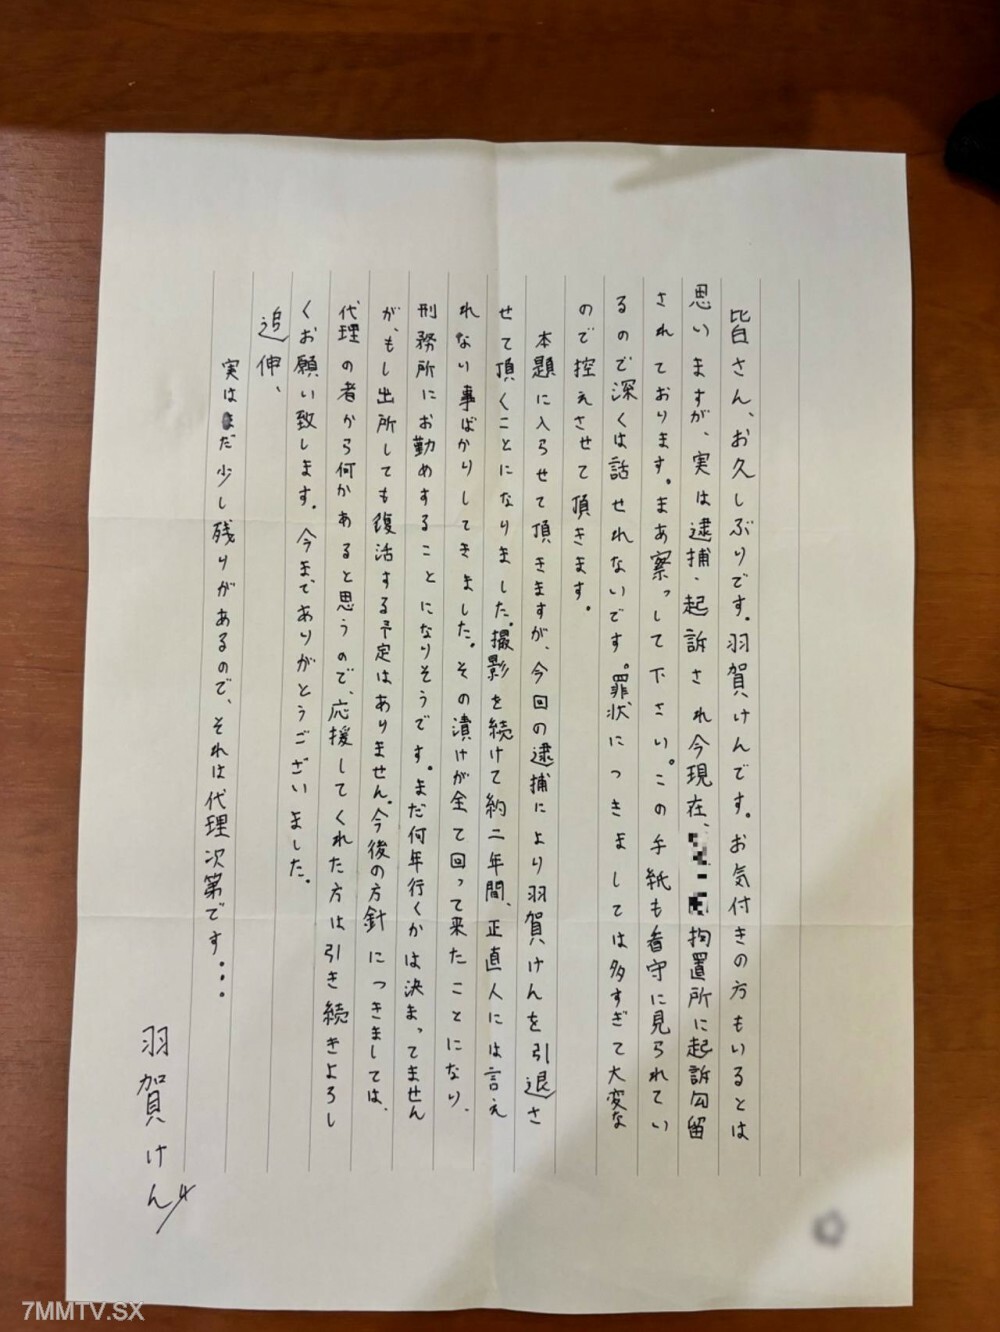 皆さん、お久しぶりです。羽賀けんです。お気付きの方もいるとは
思いますが、実は逮捕・起訴され今現在、拘置所に起訴勾留
されております。まあ察っして下さい。この手紙も看守に見られてい
るので深くは話せれないです。罪状につきましては多すぎて大変な
ので控えさせて頂きます。
本題に入らせて頂きますが、今回の逮捕により羽賀けんを引退さ
せて頂くことになりました。撮影を続けて約二年間、正直人には言え
れない事ばかりしてきました。その漬けが全て回って来たことになり、
刑務所にお勤めすることになりそうです。まだ何年行くかは決まってません
が、もし出所しても復活する予定はありません。今後の方針につきましては、
代理の者から何かあると思うので、応援してくれた方は引き続きよろし
くお願い致します。今まであありがとうございました。
追伸、
実はまだ少し残りがあるので、それは代理次第です・・・
羽賀けん
7MMTV.SX